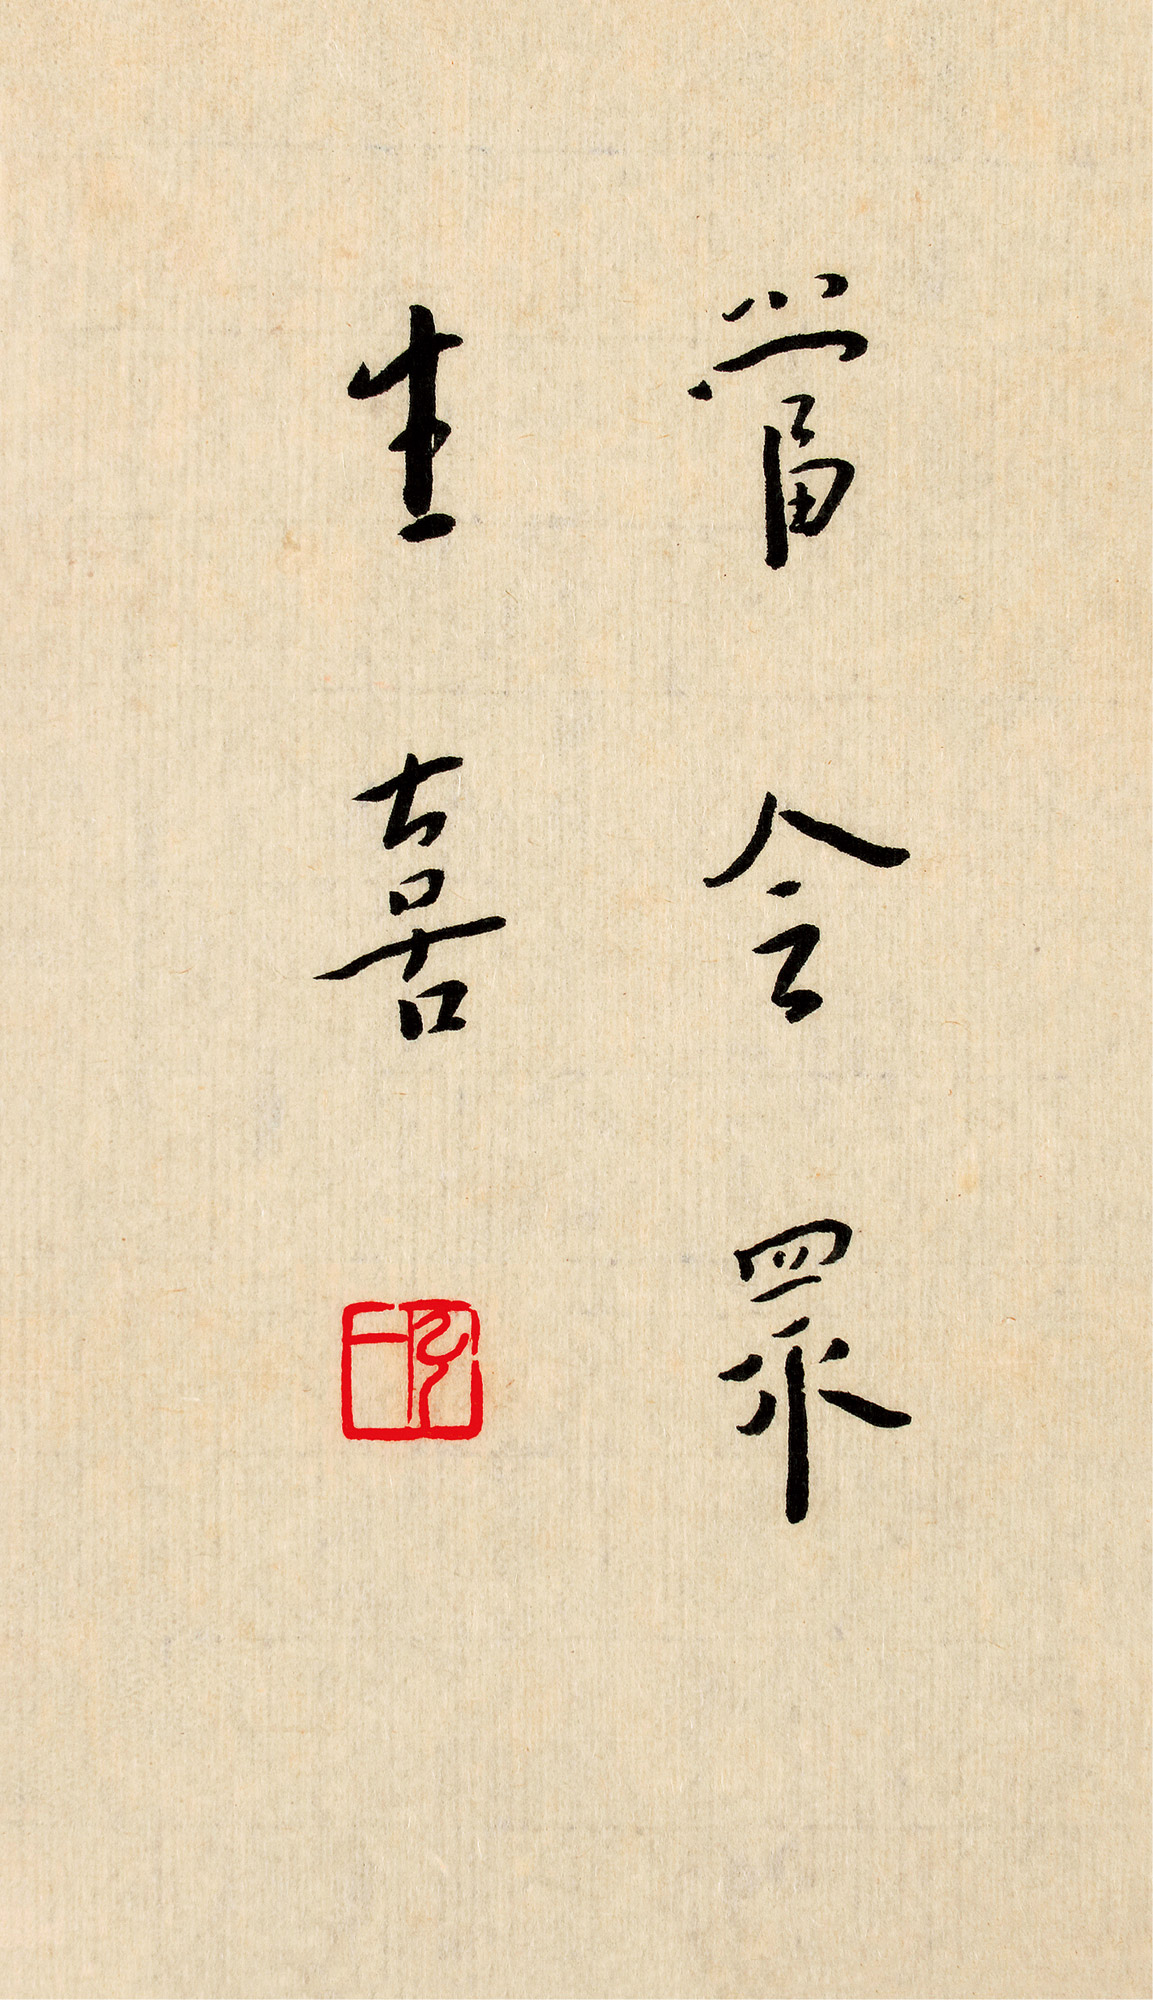 當令眾
生喜